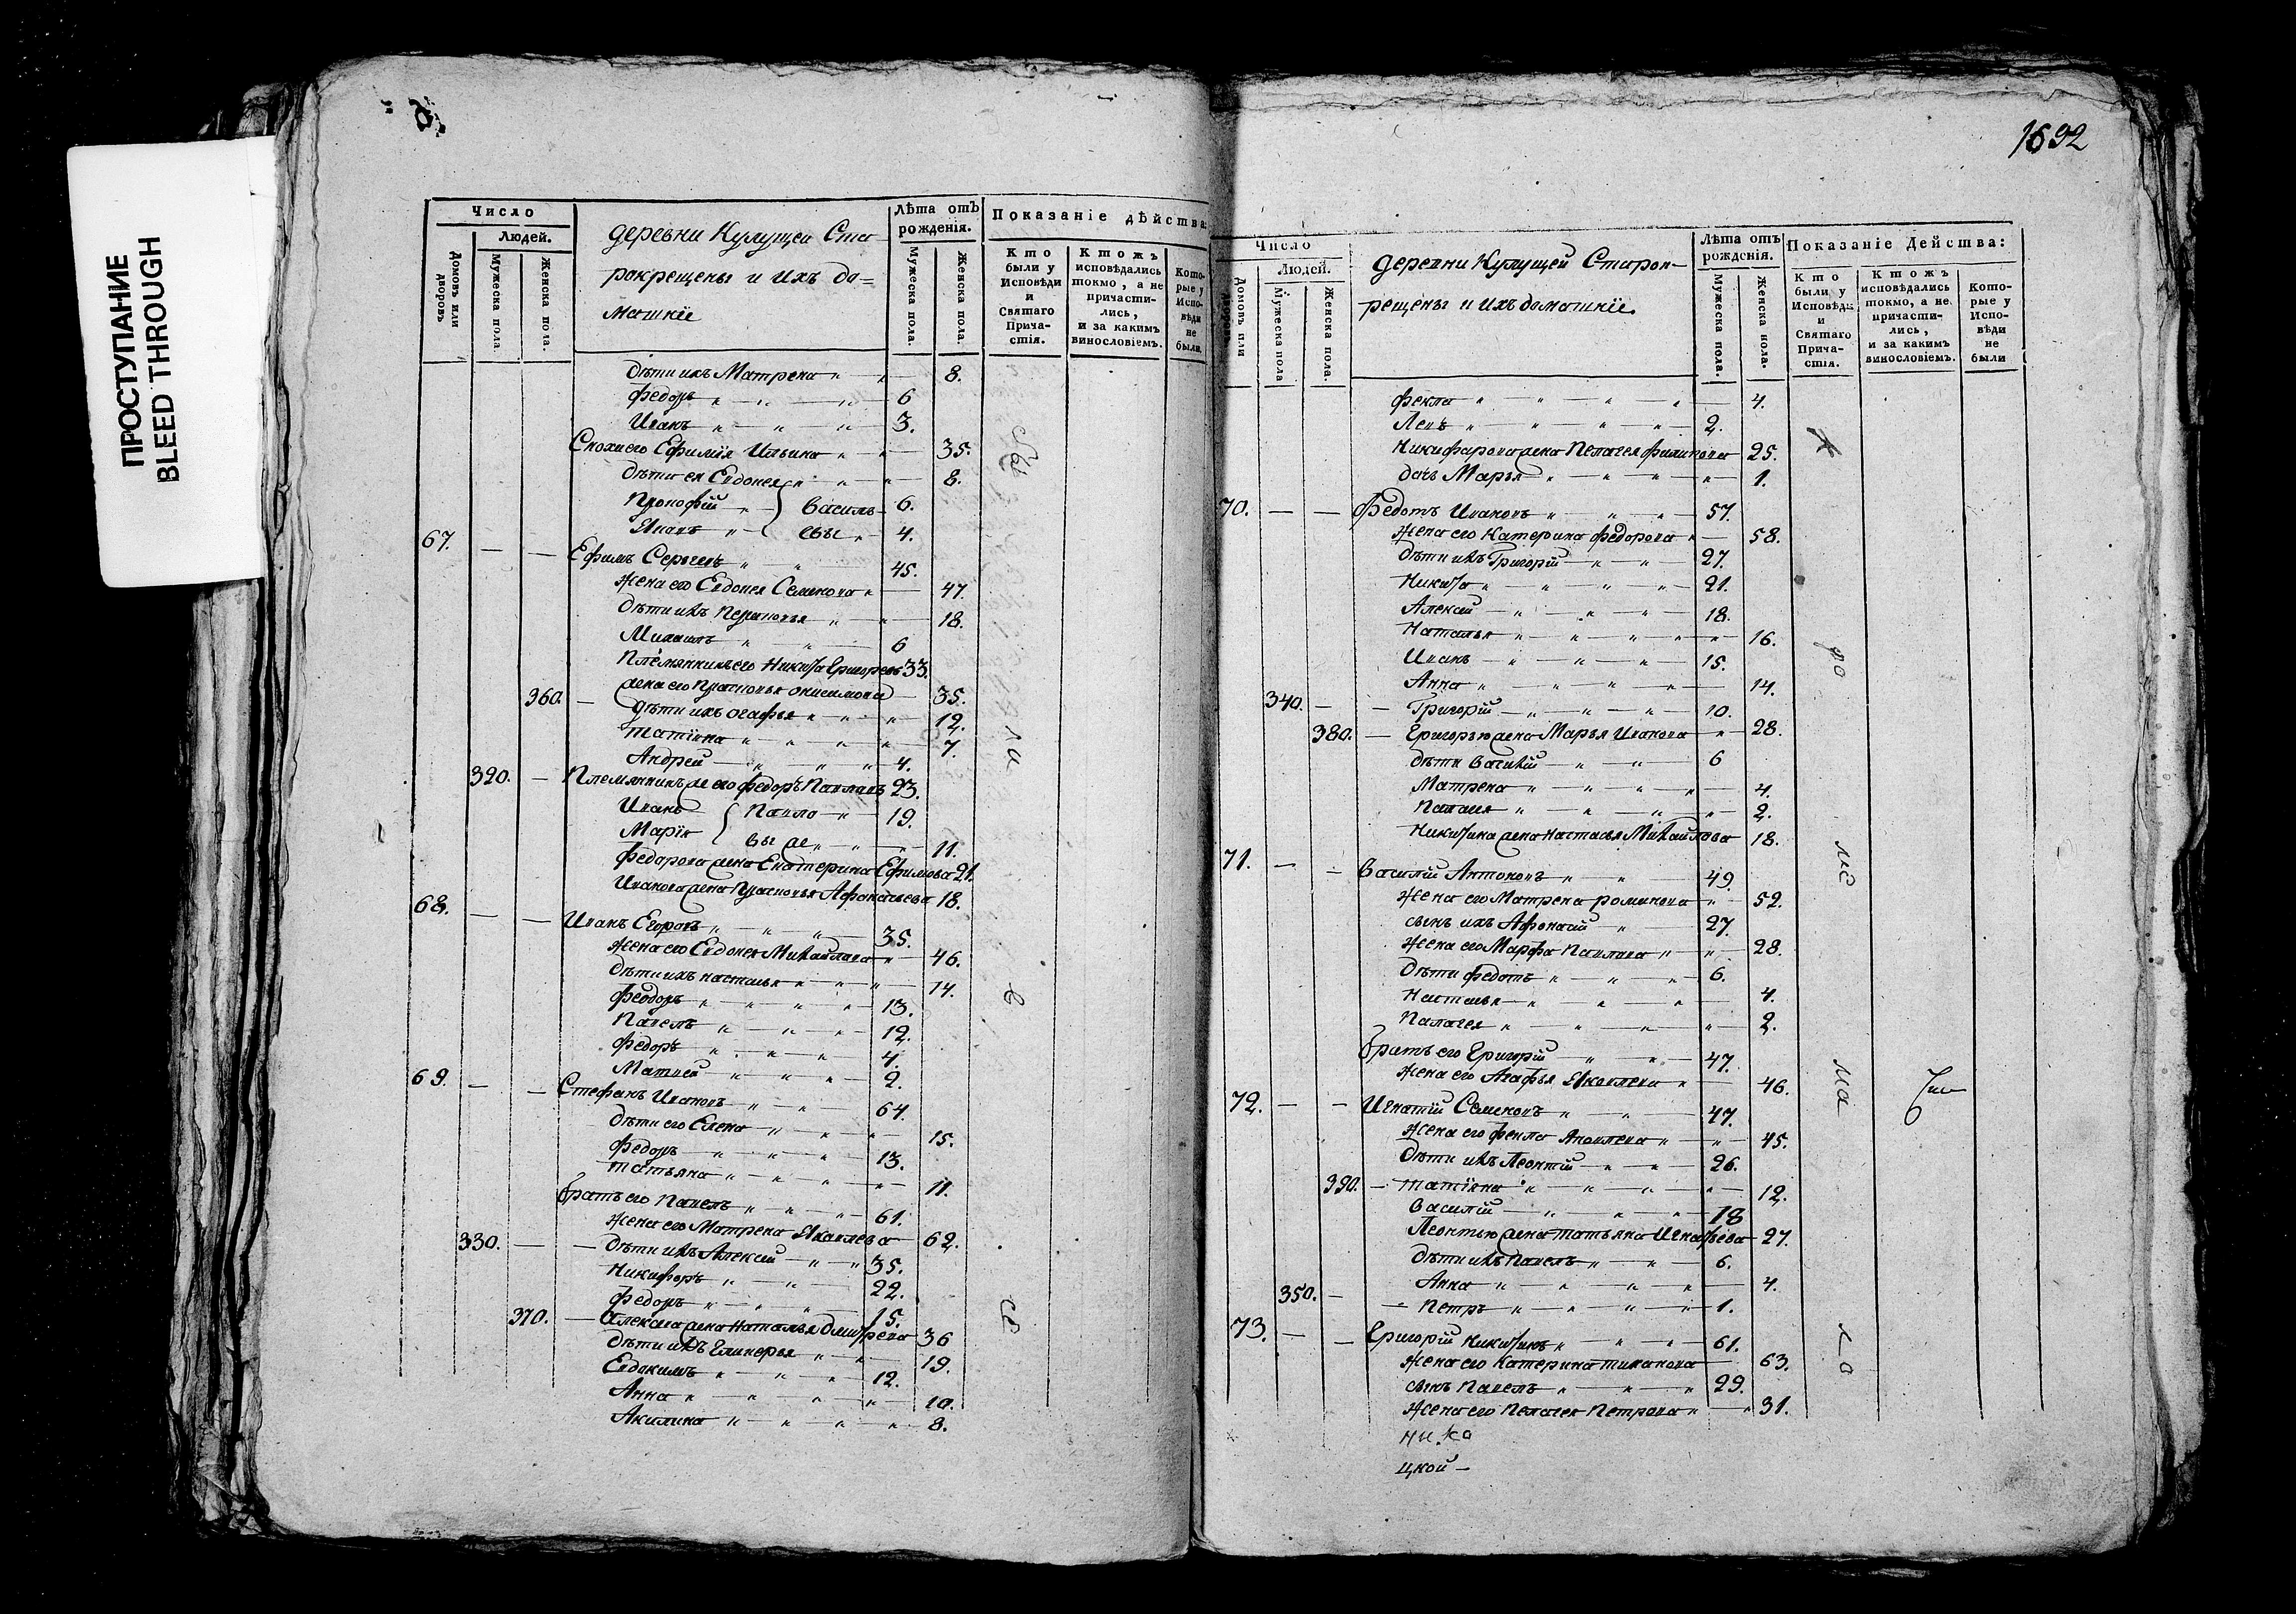 ПРОСТУПАНИЕ
BLEED THROUGH
Число
Людей.
Домовъ или дворовъ
Мужеска пола.
Женска пола.
деревни Кулущей Ста-
рокрещены и ихъ до=
машніе
Лѣта отъ рожденія.
Мужеска пола.
Женска пола.
Показаніе дѣйства:
Кто были у Исповѣди и Святаго Прича- стія.
Ктожъ исповѣдались токмо, а не причасти- лись, и за какимъ винословіемъ.
Кото- рые у Испо- вѣди не были.
дѣти ихъ Матрена 8.
Федоръ 6
Иванъ 3.
Сноха его Ефимія Ильина 35.
дѣти ея Евдокея 8.
Прокофій } Василь- 6.
Яковъ евы 4.
67. Ефимъ Сергеевъ 45.
жена его Евдокея Семенова 47.
дѣти ихъ 18.
Михаилъ 6
Племянникъ его Никита Григорьевъ 33.
жена его Прасковья Онисимова 35.
360. дѣти ихъ Огафья 12.
Татіяна 7.
Андрей 4.
320. Племянникъ же его Федоръ Павловъ 23.
Иванъ { Павло 19.
Марія вы же 11.
Федорова жена Екатерина Ефимова 21.
Иванова жена Прасковья Афанасьева 18.
68. Иванъ Егоровъ 35.
жена его Евдокея Михайлова 46.
дѣти ихъ Настасья 14.
Феодоръ 13.
Павелъ 12.
Федоръ 4.
Матвей 2.
69. Стефанъ Ивановъ 64.
дѣти его Елена 15.
Федоръ 13.
Татьяна 11.
братъ его Павелъ 61.
жена его Матрена Яковлева 62.
330. дѣти ихъ Алексей 35.
Никифоръ 22.
Федоръ 15.
370. Алексея жена Наталья Дмитрева 36
дѣти ихъ Гликерья 19.
Евдокимъ 12.
Анна 10.
Акилина 8.
1692
Число
Людей.
Домовъ или дворовъ
Мужеска пола
Женска пола.
деревни Кулущей Старок-
рещены и ихъ домашніе.
Лѣта отъ рожденія.
Мужеска пола.
Женска пола.
Показаніе Действа:
Кто были у Исповѣди и Святаго Прича- стія.
Ктожъ исповѣдались токмо, а не причасти- лись, и за какимъ винословіемъ.
Кото- рые у Испо- вѣди не были
Фекла 4.
Левъ 2.
Никифарова жена Пелагея Филипова 25.
дочь Марья 1.
70. Федотъ Ивановъ 57.
жена его Катерина Федорова 58.
дѣти ихъ Григорій 27.
Никита 21.
Алексей 18.
Наталья 16.
Иванъ 15.
Анна 14.
340. Григорій 10.
380. Григорью жена Марья Иванова 28.
дѣти Василій 6
Матрена 4.
2.
Никитина жена Настасья Михайлова 18.
71. Василій Антоновъ 49.
жена его Матрена Романова 52.
сынъ ихъ Афонасій 27.
жена его Марфа Павлова 28.
дѣти Федотъ 6.
Настасья 4.
Палагея 2.
братъ его Григорій 47.
жена его Агафья Яковлева 46.
72. Игнатій Семеновъ 47.
жена его Фекла Яковлева 45.
дѣти ихъ Леонтій 26.
390. Татіяна 12.
Василій 18
Леонтью жена Татьяна Игнатьева 27.
дѣти ихъ Павелъ 6.
Анна 4.
350. Петръ 1.
73. Григорій Никитинъ 61.
жена его Катерина 63.
сынъ Павелъ 29.
жена его Пелагея Петрова 31.
цкой